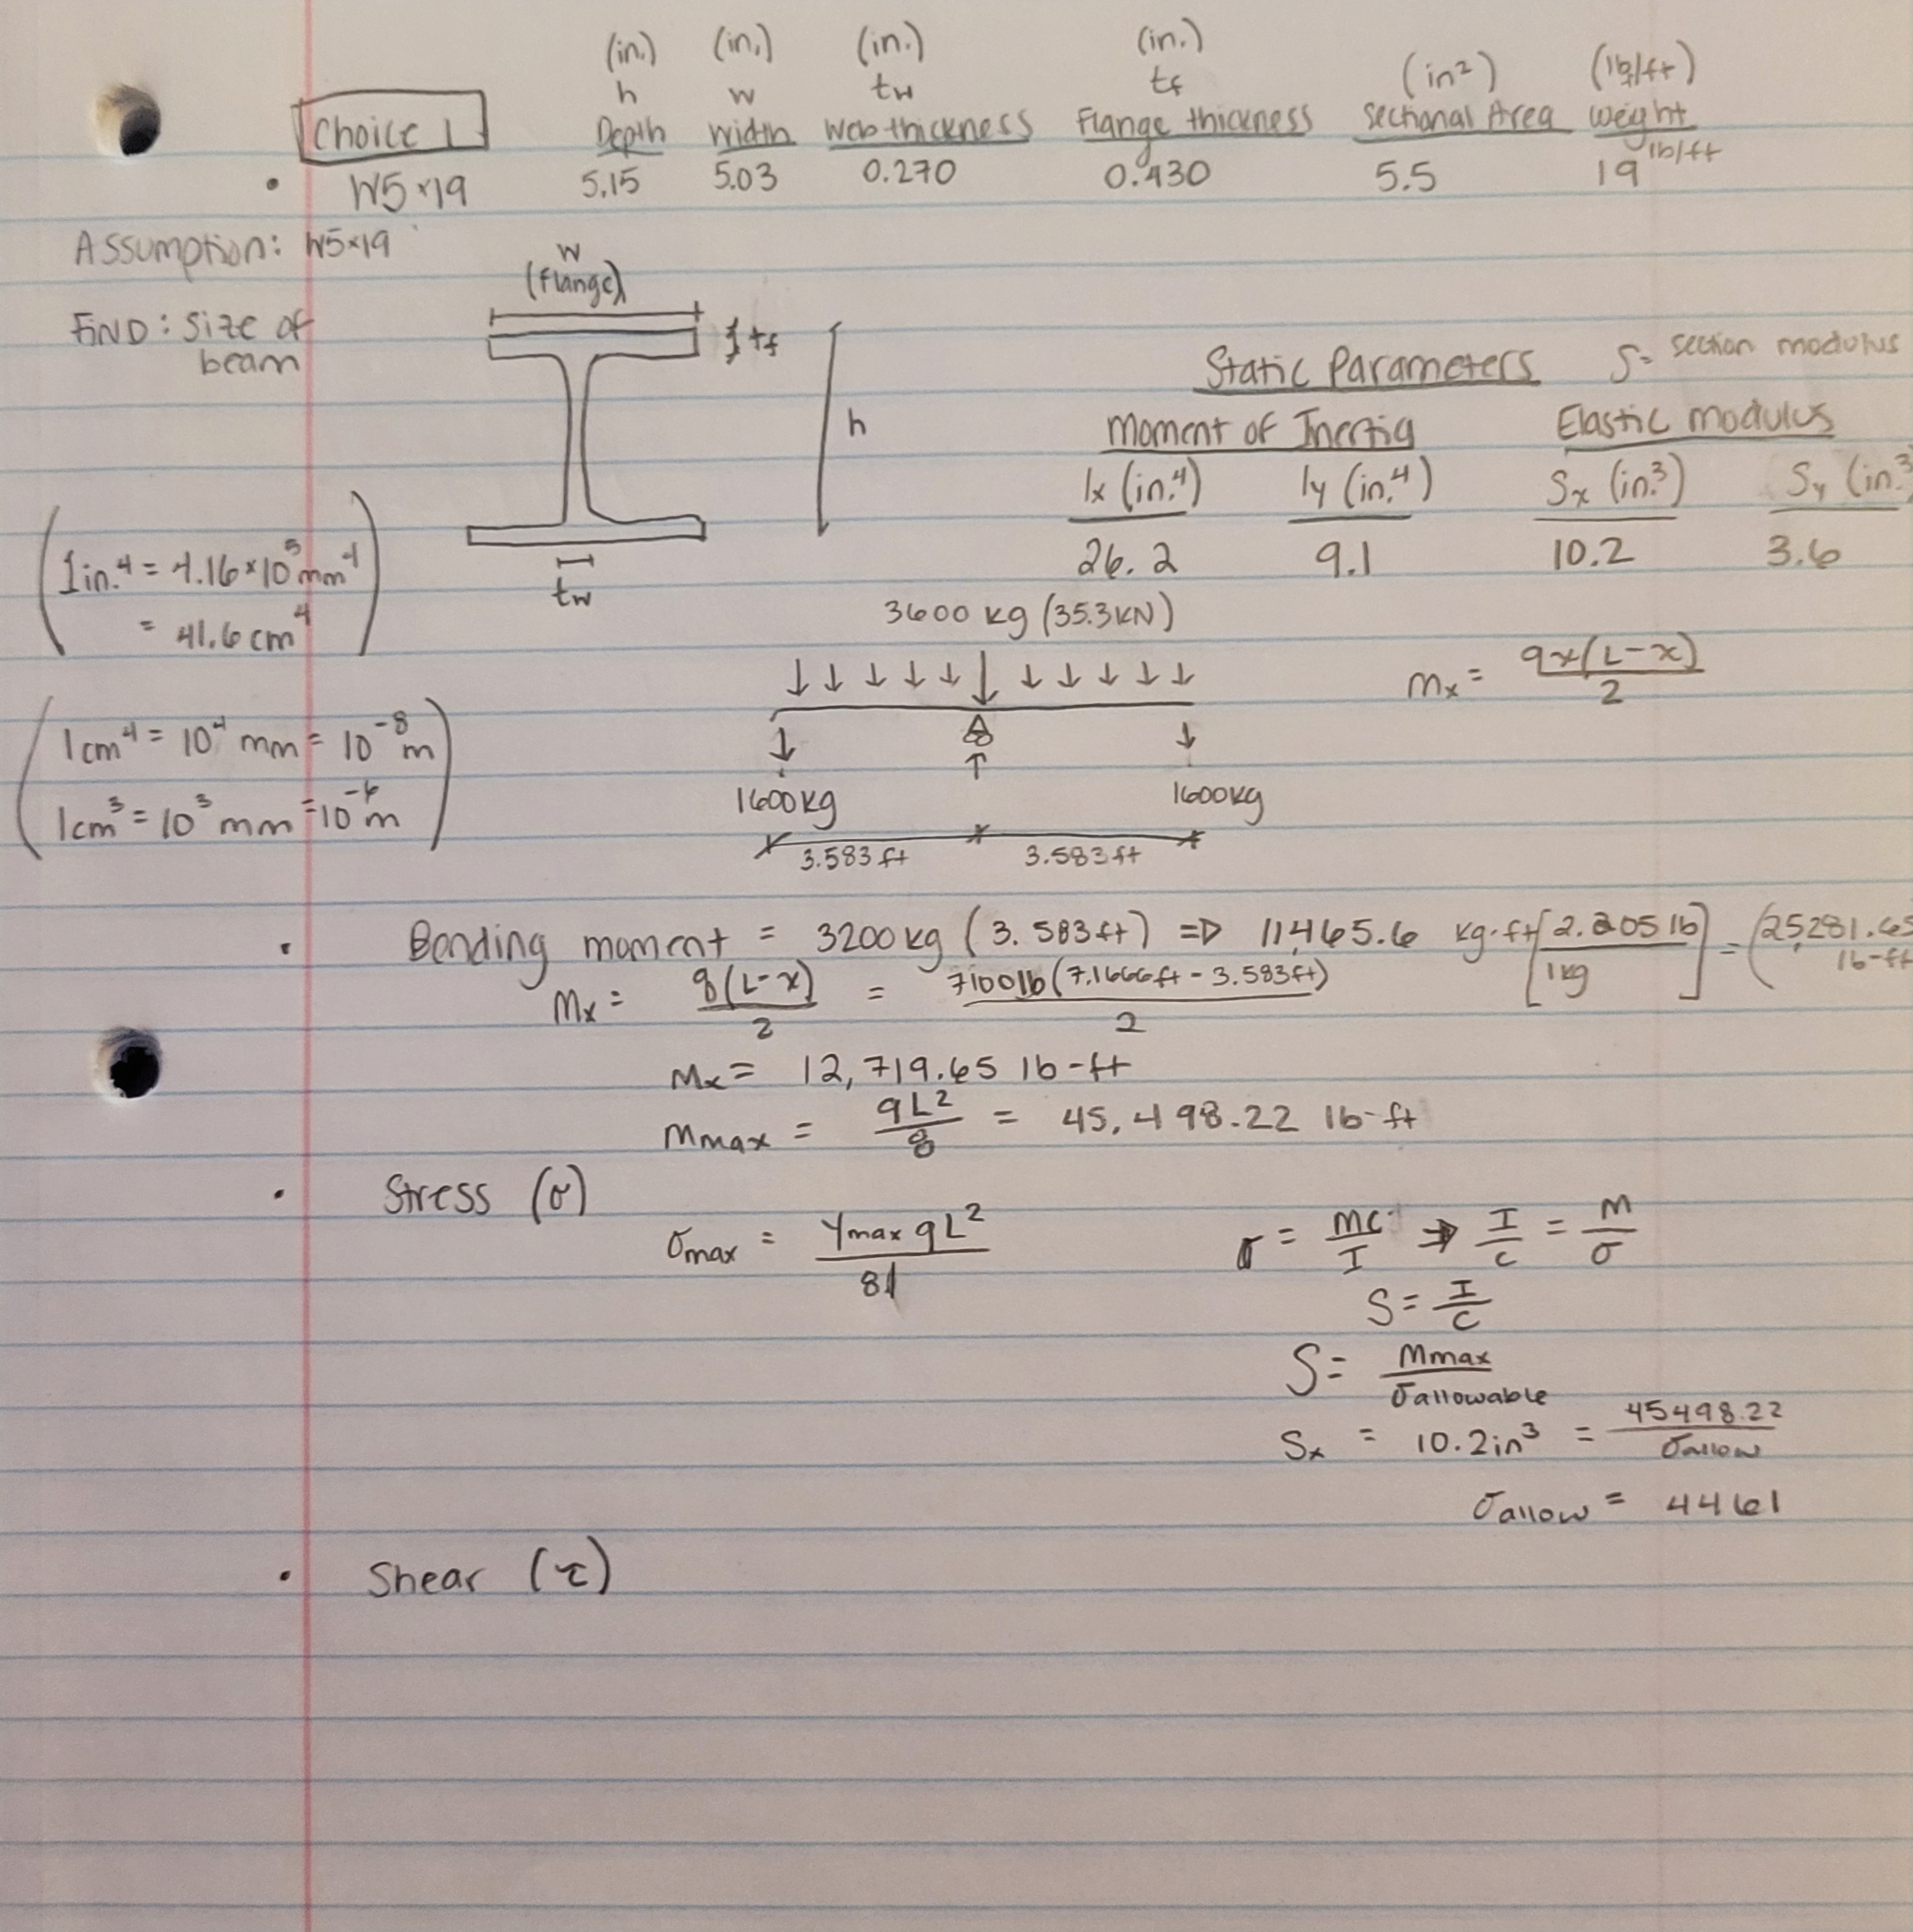 (in.) (in.) (in.) (in.) (in²) (lb/ft)
h w tw tf
Choice 1 Depth Width Web thickness Flange thickness Sectional Area Weight
• W5×19 5.15 5.03 0.270 0.430 5.5 19 lb/ft
Assumption: W5×19
w
(flange)
FIND: Size of
beam
tf
h
tw
Static Parameters S= section modulus
Moment of Inertia Elastic modulus
Ix (in.⁴) Iy (in.⁴) Sx (in.³) Sy (in.³
26.2 9.1 10.2 3.6
1in.⁴ = 4.16×10⁵ mm⁴
= 41.6 cm⁴
3600 kg (35.3KN)
Mx = qx(L-x)/2
1cm⁴ = 10⁴ mm = 10⁻⁸ m
1cm³ = 10³ mm = 10⁻⁶ m
1600kg 1600kg
3.583 ft 3.583 ft
• Bending moment = 3200kg (3.583ft) => 11,465.6 kg·ft [2.205 lb/1kg] = (25,281.65 lb-ft
Mx = q(L-x)/2 = 7100lb(7.1666ft - 3.583ft)/2
Mx = 12,719.65 lb-ft
Mmax = qL²/8 = 45,498.22 lb-ft
• Stress (σ)
σmax = Ymax qL²/8I
σ = MC/I → I/C = M/σ
S = I/C
S = Mmax/σallowable
Sx = 10.2in³ = 45498.22/σallow
σallow = 4461
• Shear (τ)